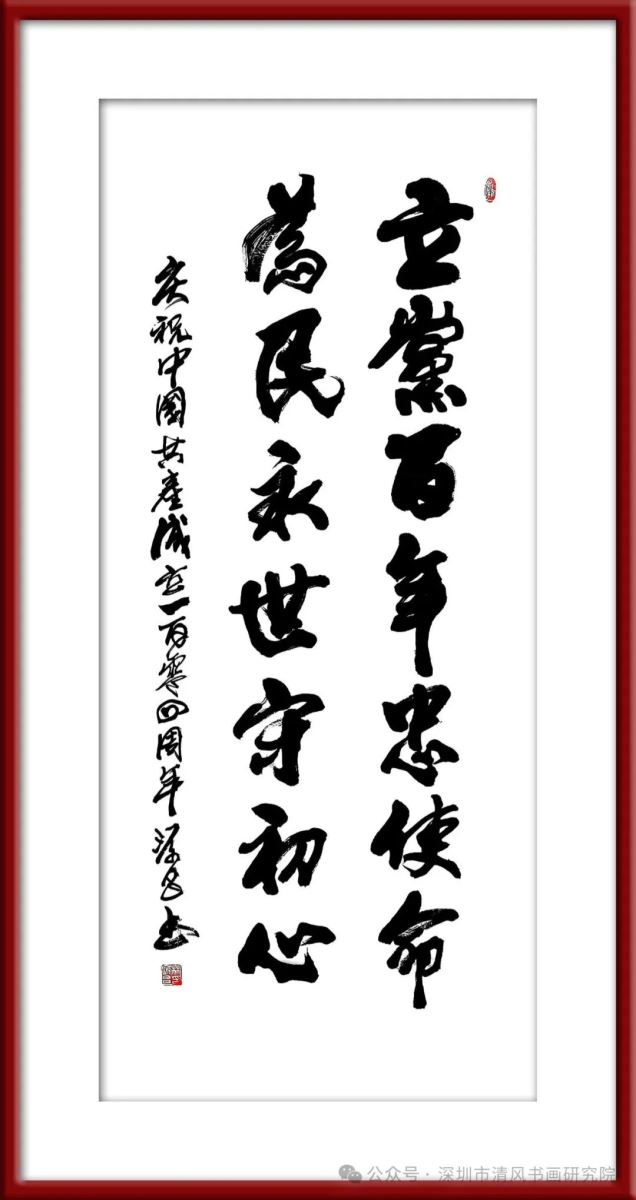 立黨百年忠使命
為民永世守初心
庆祝中國共產成立一百零四周年 书
公众号 · 深圳市清风书画研究院